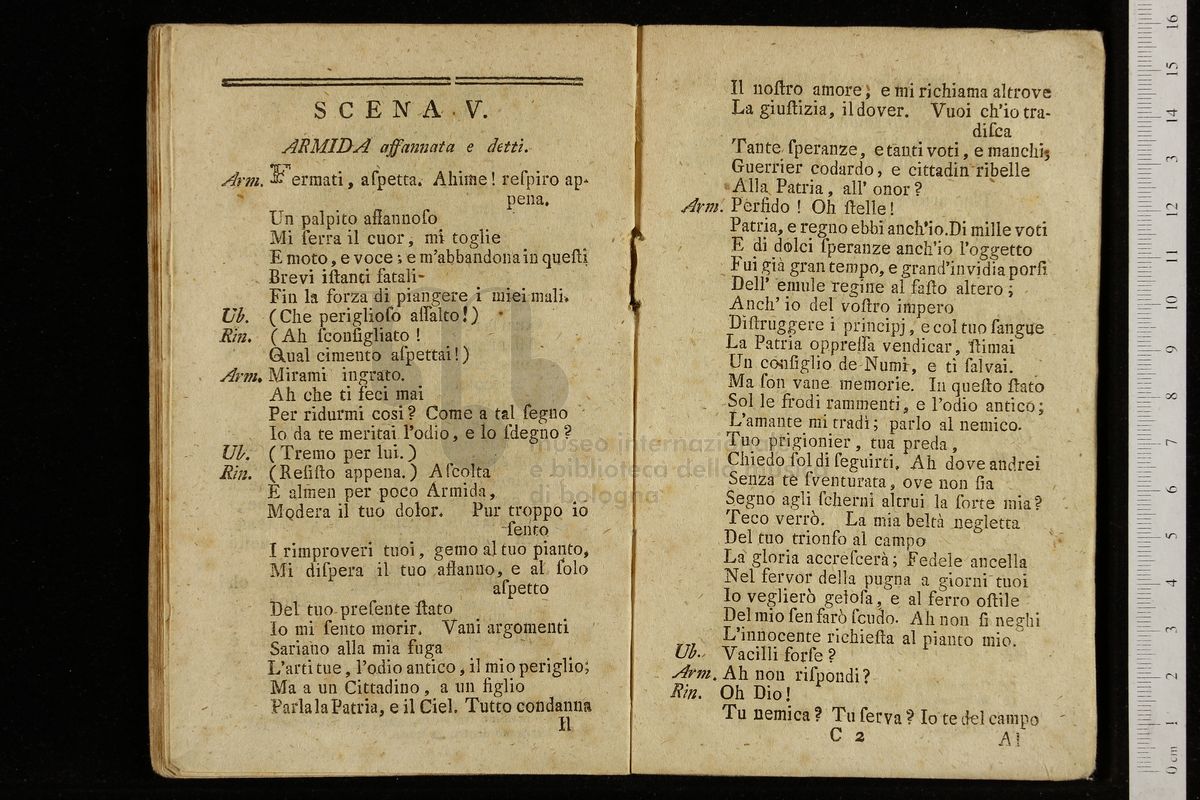 SCENA V.
ARMIDA affannata e detti.
Arm. Fermati, aſpetta. Ahime! reſpiro ap-
pena.
Un palpito aſſannoſo
Mi ſerra il cuor, mi toglie
E moto, e voce; e m'abbandona in queſti
Brevi iſtanti fatali
Fin la forza di piangere i miei mali.
Ub. (Che periglioſo aſſalto!)
Rin. (Ah ſconſigliato!
Qual cimento aſpettai!)
Arm. Mirami ingrato.
Ah che ti feci mai
Per ridurmi cosi? Come a tal ſegno
Io da te meritai l'odio, e lo ſdegno?
Ub. (Tremo per lui.)
Rin. (Reſiſto appena.) Aſcolta
E almen per poco Armida,
Modera il tuo dolor. Pur troppo io
ſento
I rimproveri tuoi, gemo al tuo pianto,
Mi diſpera il tuo affanno, e al ſolo
aſpetto
Del tuo preſente ſtato
Io mi ſento morir. Vani argomenti
Sariano alla mia fuga
L'arti tue, l'odio antico, il mio periglio;
Ma a un Cittadino, a un figlio
Parla la Patria, e il Ciel. Tutto condanna
Il
Il noſtro amore; e mi richiama altrove
La giuſtizia, il dover. Vuoi ch'io tra-
diſca
Tante ſperanze, e tanti voti, e manchi,
Guerrier codardo, e cittadin ribelle
Alla Patria, all' onor?
Arm. Perfido! Oh ſtelle!
Patria, e regno ebbi anch'io. Di mille voti
E di dolci ſperanze anch'io l'oggetto
Fui già gran tempo, e grand'invidia porſi
Dell' emule regine al faſto altero;
Anch' io del voſtro impero
Diſtruggere i principj, e col tuo ſangue
La Patria oppreſſa vendicar, ſtimai
Un conſiglio de Numi, e ti ſalvai.
Ma ſon vane memorie. In queſto ſtato
Sol le frodi rammenti, e l'odio antico;
L'amante mi tradì; parlo al nemico.
Tuo prigionier, tua preda,
Chiedo ſol di ſeguirti. Ah dove andrei
Senza te ſventurata, ove non ſia
Segno agli ſcherni altrui la ſorte mia?
Teco verrò. La mia beltà negletta
Del tuo trionfo al campo
La gloria accreſcerà; Fedele ancella
Nel fervor della pugna a giorni tuoi
Io veglierò geloſa, e al ferro oſtile
Del mio ſen farò ſcudo. Ah non ſi neghi
L'innocente richieſta al pianto mio.
Ub. Vacilli forſe?
Arm. Ah non riſpondi?
Rin. Oh Dio!
Tu nemica? Tu ſerva? Io te del campo
C 2
Al
museo internazionale
e biblioteca della musica
di bologna
0 cm 1 2 3 4 5 6 7 8 9 10 11 12 13 14 15 16